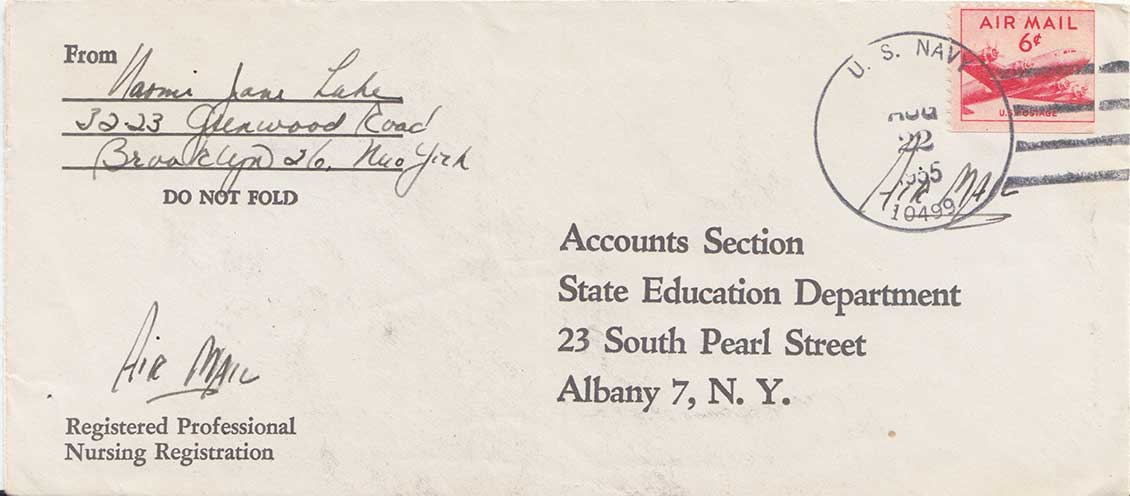 From
Naomi Jane Lake
3223 Glenwood Road
Brooklyn 26, New York
DO NOT FOLD
AIR MAIL
6¢
U.S. POSTAGE
U. S. NAVY
AUG
22
1955
10499
AIR MAIL
Accounts Section
State Education Department
23 South Pearl Street
Albany 7, N. Y.
AIR MAIL
Registered Professional
Nursing Registration